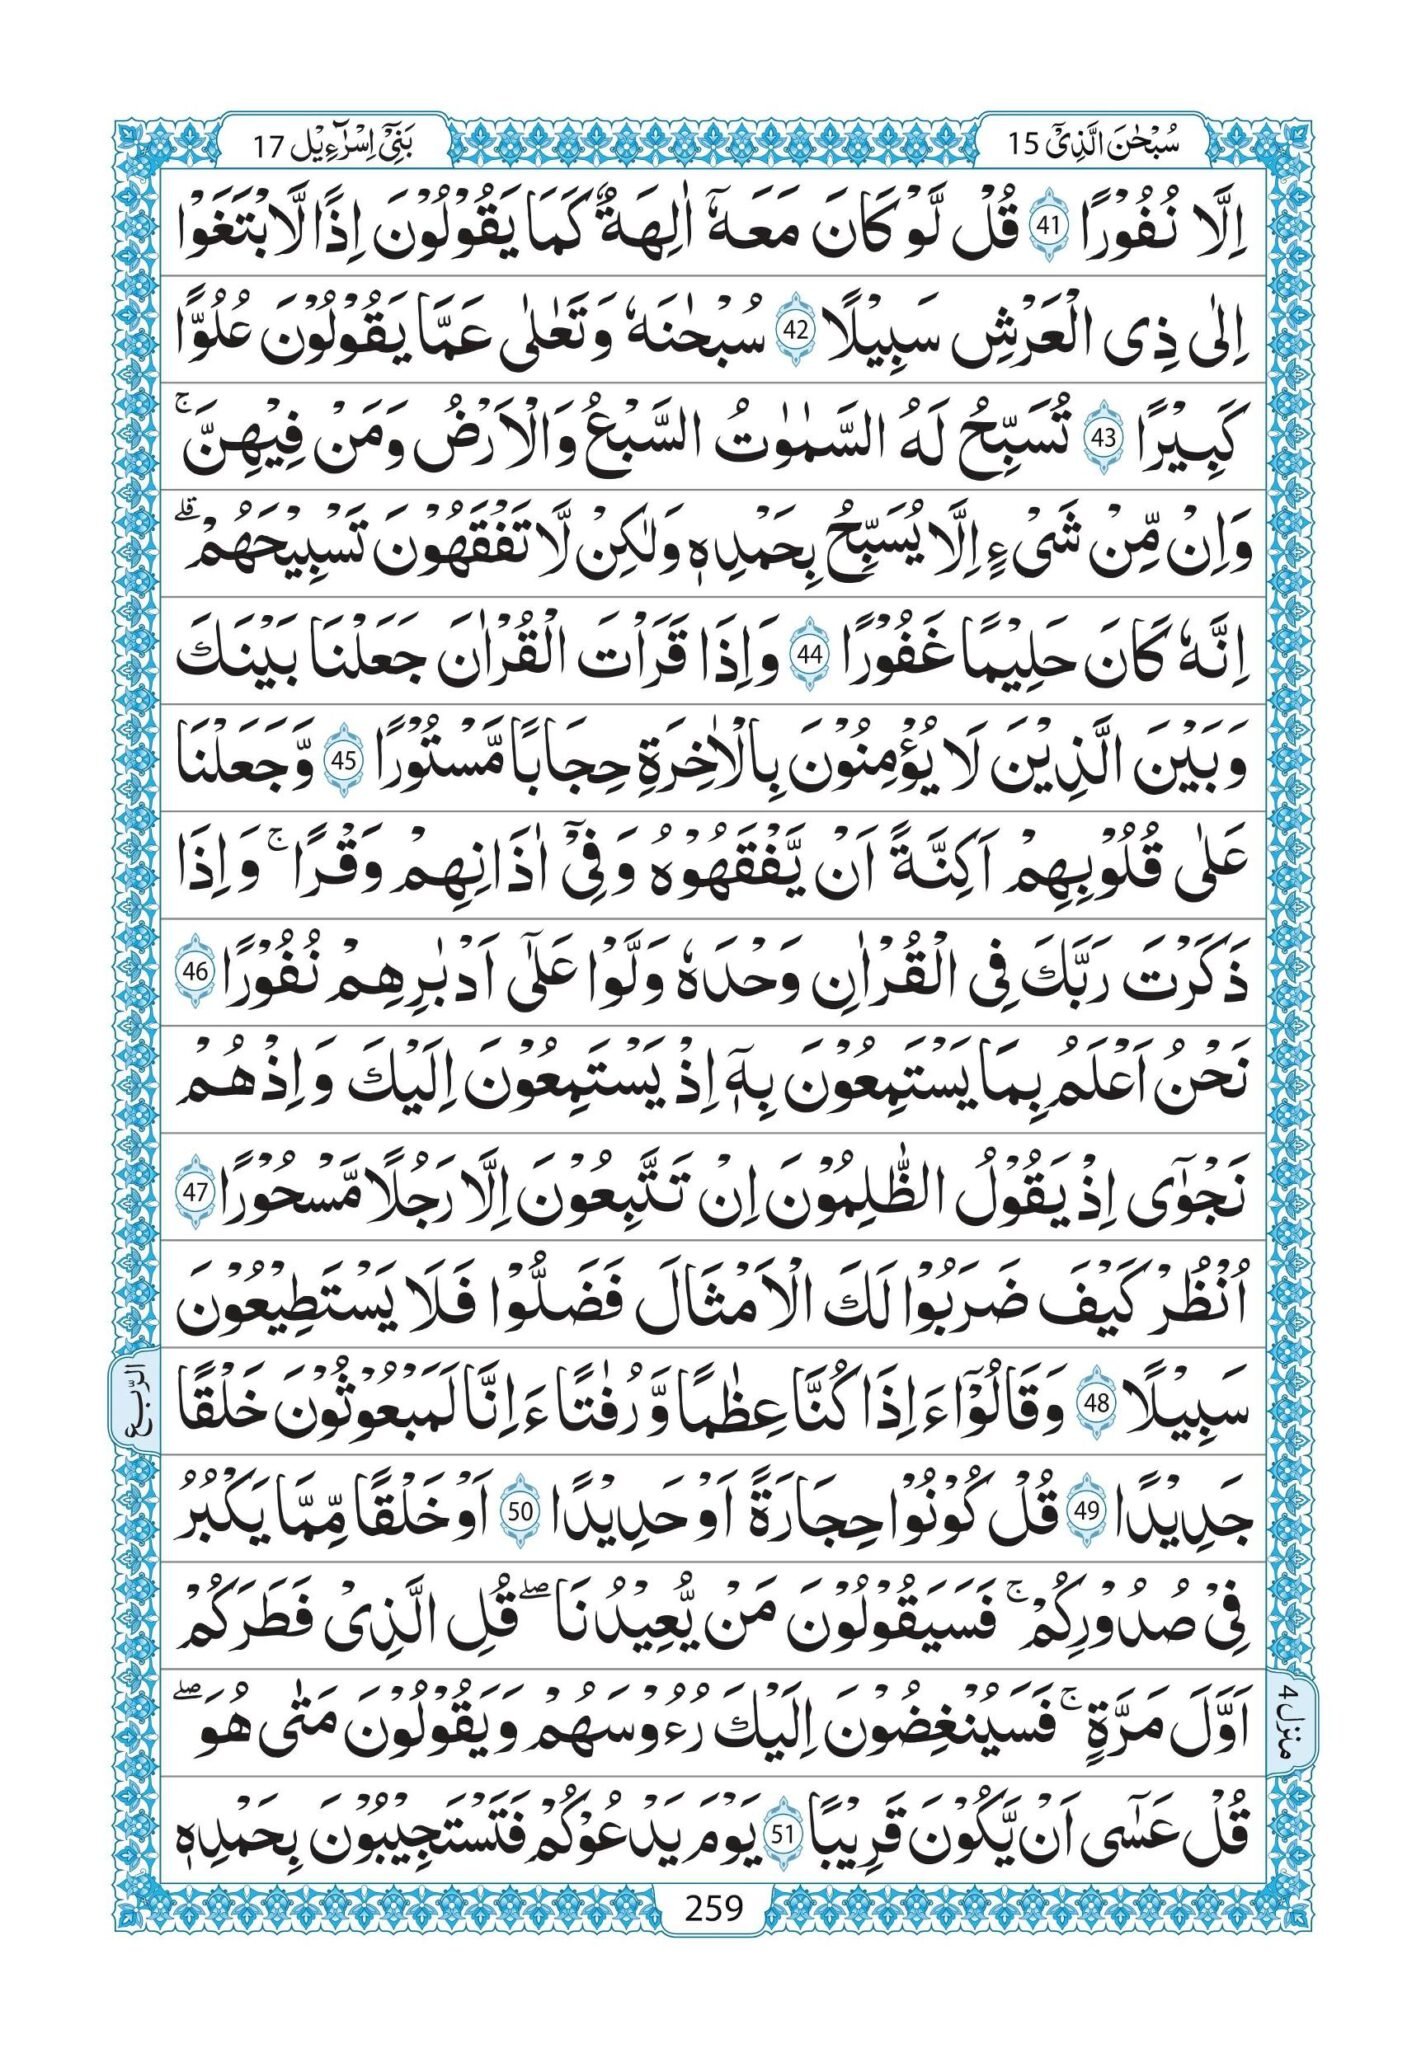 سُبْحٰنَ الَّذِیْۤ 15
بَنِیْۤ اِسْرَآءِیْل 17
اِلَّا نُفُوْرًا 41 قُلْ لَّوْ كَانَ مَعَهٗۤ اٰلِهَةٌ كَمَا یَقُوْلُوْنَ اِذًا لَّابْتَغَوْا
اِلٰى ذِی الْعَرْشِ سَبِیْلًا 42 سُبْحٰنَهٗ وَ تَعٰلٰى عَمَّا یَقُوْلُوْنَ عُلُوًّا
كَبِیْرًا 43 تُسَبِّحُ لَهُ السَّمٰوٰتُ السَّبْعُ وَ الْاَرْضُ وَ مَنْ فِیْهِنَّ ۚ
وَ اِنْ مِّنْ شَیْءٍ اِلَّا یُسَبِّحُ بِحَمْدِهٖ وَ لٰكِنْ لَّا تَفْقَهُوْنَ تَسْبِیْحَهُمْ ۗ
اِنَّهٗ كَانَ حَلِیْمًا غَفُوْرًا 44 وَ اِذَا قَرَاْتَ الْقُرْاٰنَ جَعَلْنَا بَیْنَكَ
وَ بَیْنَ الَّذِیْنَ لَا یُؤْمِنُوْنَ بِالْاٰخِرَةِ حِجَابًا مَّسْتُوْرًا 45 وَّ جَعَلْنَا
عَلٰى قُلُوْبِهِمْ اَكِنَّةً اَنْ یَّفْقَهُوْهُ وَ فِیْۤ اٰذَانِهِمْ وَقْرًا ۚ وَ اِذَا
ذَكَرْتَ رَبَّكَ فِی الْقُرْاٰنِ وَحْدَهٗ وَلَّوْا عَلٰۤى اَدْبٰرِهِمْ نُفُوْرًا 46
نَحْنُ اَعْلَمُ بِمَا یَسْتَمِعُوْنَ بِهٖۤ اِذْ یَسْتَمِعُوْنَ اِلَیْكَ وَ اِذْ هُمْ
نَجْوٰۤى اِذْ یَقُوْلُ الظّٰلِمُوْنَ اِنْ تَتَّبِعُوْنَ اِلَّا رَجُلًا مَّسْحُوْرًا 47
اُنْظُرْ كَیْفَ ضَرَبُوْا لَكَ الْاَمْثَالَ فَضَلُّوْا فَلَا یَسْتَطِیْعُوْنَ
سَبِیْلًا 48 وَ قَالُوْۤا ءَاِذَا كُنَّا عِظٰمًا وَّ رُفٰتًا ءَاِنَّا لَمَبْعُوْثُوْنَ خَلْقًا
الرّبع
جَدِیْدًا 49 قُلْ كُوْنُوْا حِجَارَةً اَوْ حَدِیْدًا 50 اَوْ خَلْقًا مِّمَّا یَكْبُرُ
فِیْ صُدُوْرِكُمْ ۚ فَسَیَقُوْلُوْنَ مَنْ یُّعِیْدُنَا ۖ قُلِ الَّذِیْ فَطَرَكُمْ
اَوَّلَ مَرَّةٍ ۚ فَسَیُنْغِضُوْنَ اِلَیْكَ رُءُوْسَهُمْ وَ یَقُوْلُوْنَ مَتٰى هُوَ ۖ
منزل 4
قُلْ عَسٰۤى اَنْ یَّكُوْنَ قَرِیْبًا 51 یَوْمَ یَدْعُوْكُمْ فَتَسْتَجِیْبُوْنَ بِحَمْدِهٖ
259